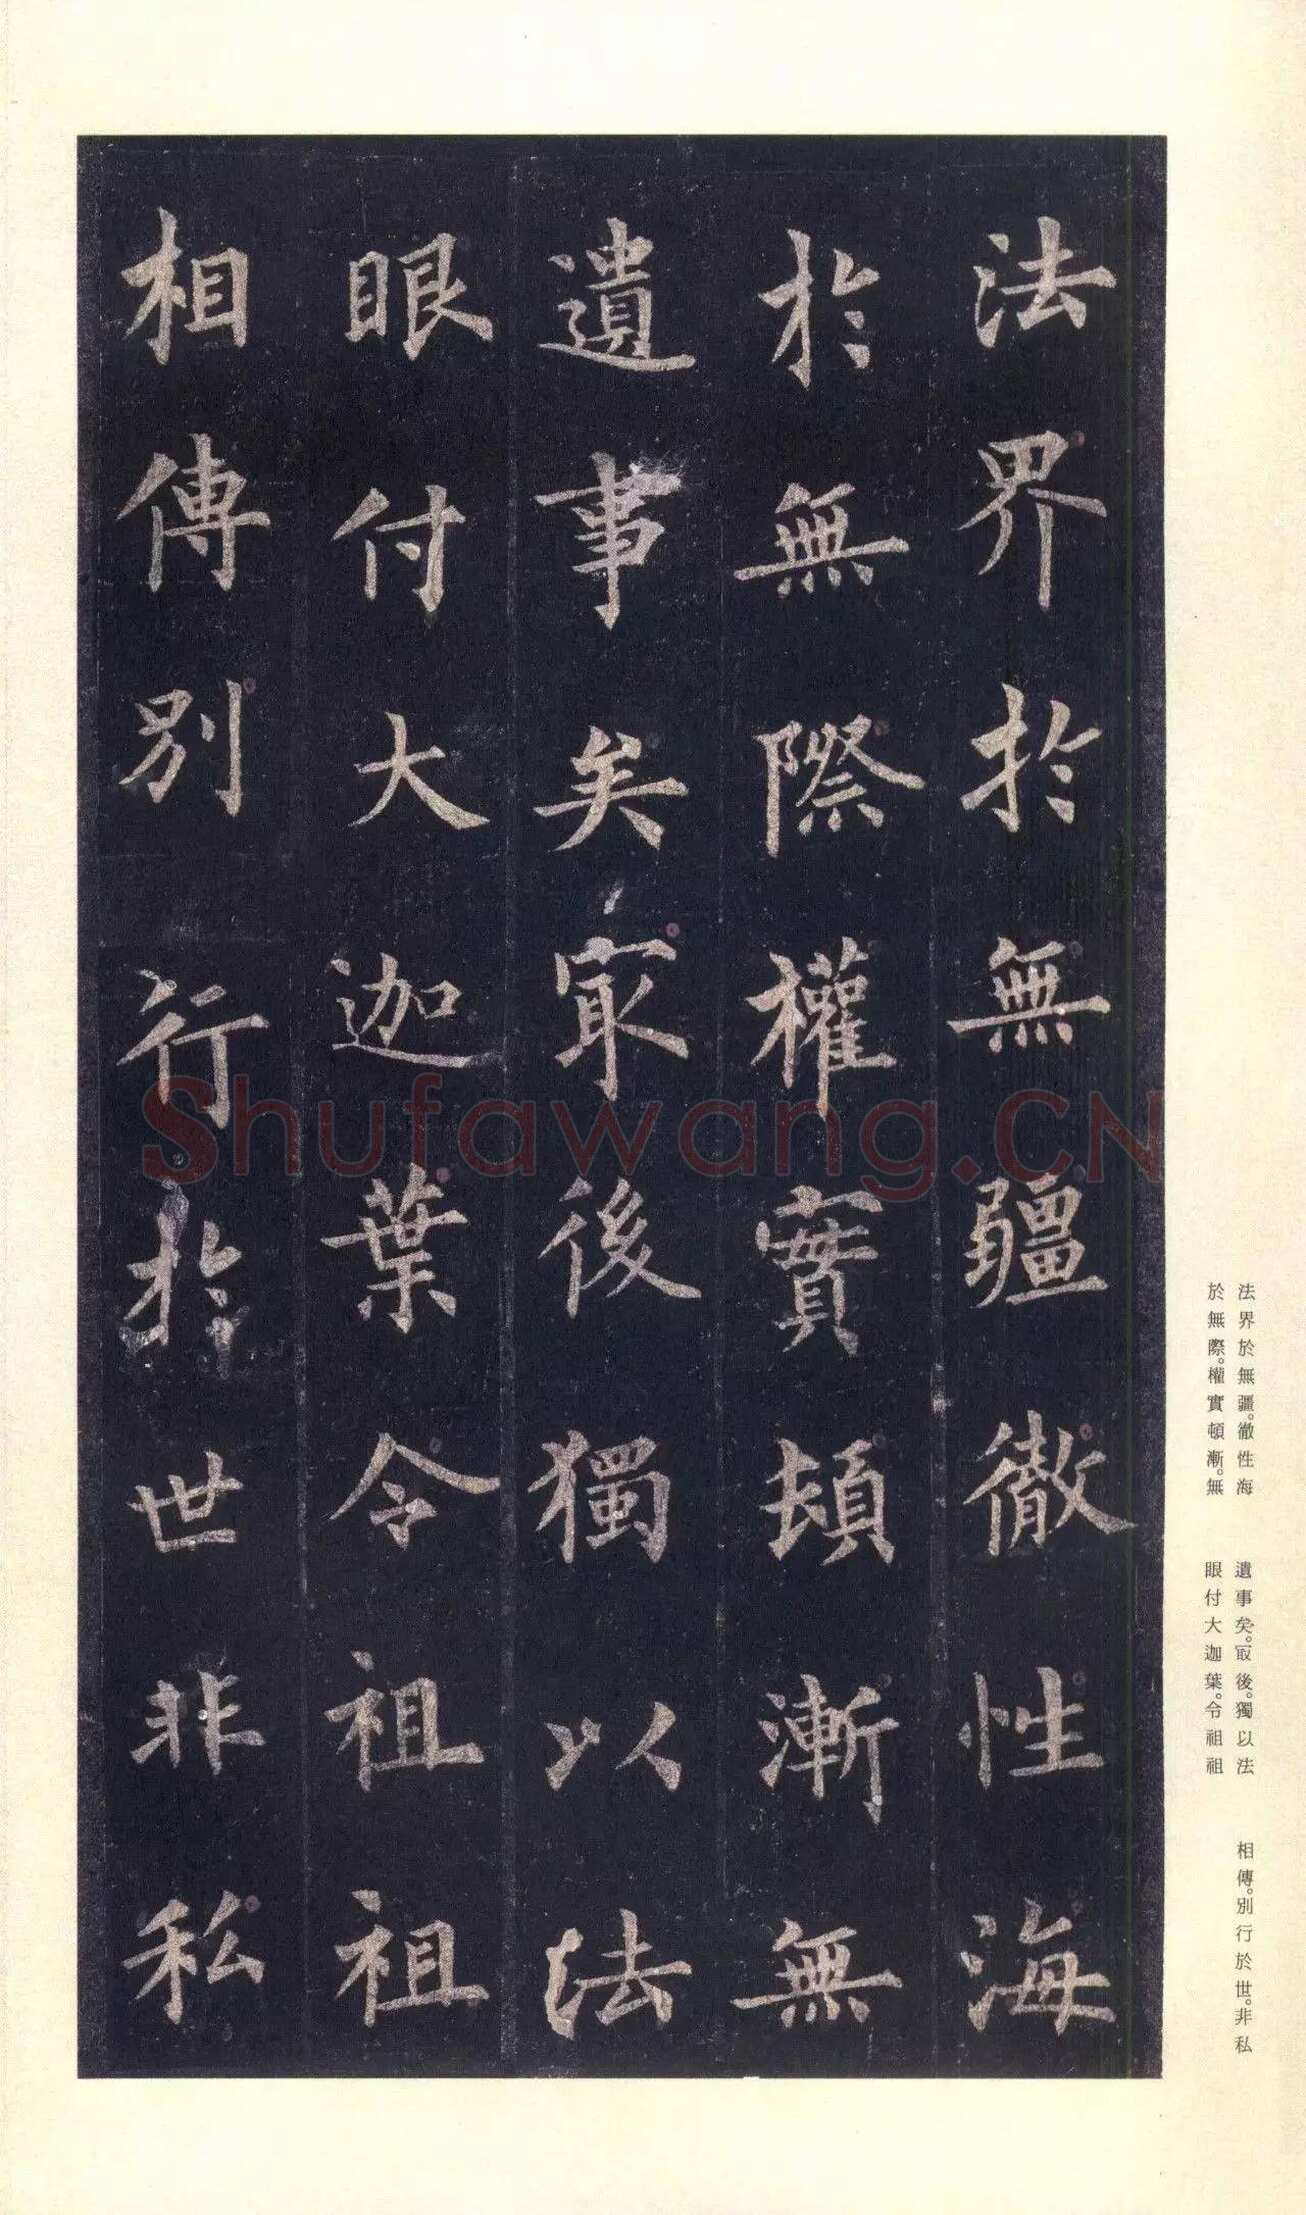 法界於無疆徹性海
於無際權實頓漸無
遺事矣冣後獨以法
眼付大迦葉令祖祖
相傳別行於世非私
法界於無疆。徹性海
於無際。權實頓漸。無
遺事矣。冣後。獨以法
眼付大迦葉。令祖祖
相傳。別行於世。非私
Shufawang.CN